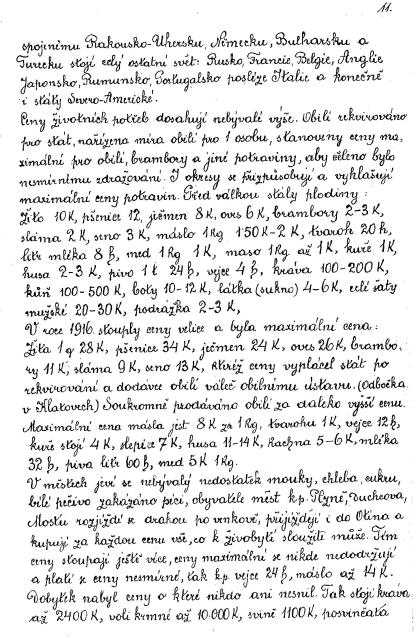 11.
spojenému Rakousko-Uhersku, Německu, Bulharsku a
Turecku stojí celý ostatní svět: Rusko, Francie, Belgie, Anglie
Japonsko, Rumunsko, Portugalsko posléze Italie a konečně
i státy Severo-Americké.
Ceny životních potřeb dosahují nebývalé výše. Obilí rekvirováno
pro stát, nařízena míra obilí pro 1 osobu, stanoveny ceny ma-
ximální pro obilí, brambory a jiné potraviny, aby čeleno bylo
nesmírnému zdražování. I okresy se přizpůsobují a vyhlašují
maximální ceny potravin. Před válkou stály plodiny:
Žito 10 K, pšenice 12, ječmen 8 K, oves 6 K, brambory 2-3 K,
sláma 2 K, seno 3 K, máslo 1 Kg 1·50 K-2 K, tvaroh 20 h,
litr mléka 8 h, med 1 Kg 1 K, maso 1 Kg až 1 K, kuře 1 K,
husa 2-3 K, pivo 1 l 24 h, vejce 4 h, kráva 100-200 K,
kůň 100-500 K, boty 10-12 K, látka (sukno) 4-6 K, celé šaty
mužské 20-30 K, podrážka 2-3 K,
V roce 1916 stouply ceny velice a byla maximální cena:
Žita 1 q 28 K, pšenice 34 K, ječmen 24 K, oves 26 K, brambo-
ry 11 K, sláma 9 K, seno 13 K, kteréž ceny vyplácel stát po
rekvirování a dodávce obilí váleč. obilnímu ústavu. (Odbočka
v Klatovech) Soukromně prodáváno obilí za daleko vyšší cenu.
Maximální cena másla jest 8 K za 1 Kg, tvarohu 1 K, vejce 12 h,
kuře stojí 4 K, slepice 7 K, husa 11-14 K, kachna 5-6 K, mléka
32 h, piva litr 60 h, med 5 K 1 Kg.
V městech jeví se nebývalý nedostatek mouky, chleba, cukru,
bílé pečivo zakázáno péci, obyvatelé měst k.p. Plzně, Duchcova,
Mostu rozjíždí se drahou po venkově, přijíždějí i do Otína a
kupují za každou cenu vše, co k živobytí sloužiti může. Tím
ceny stoupají ještě více, ceny maximální se nikde nedodržují
a platí se ceny nesmírné, tak k.p. vejce 24 h, máslo až 14 K.
Dobytek nabyl ceny o které nikdo ani nesnil. Tak stojí kráva
až 2400 K, voli krmné až 10.000 K, svině 1100 K, posvinčata